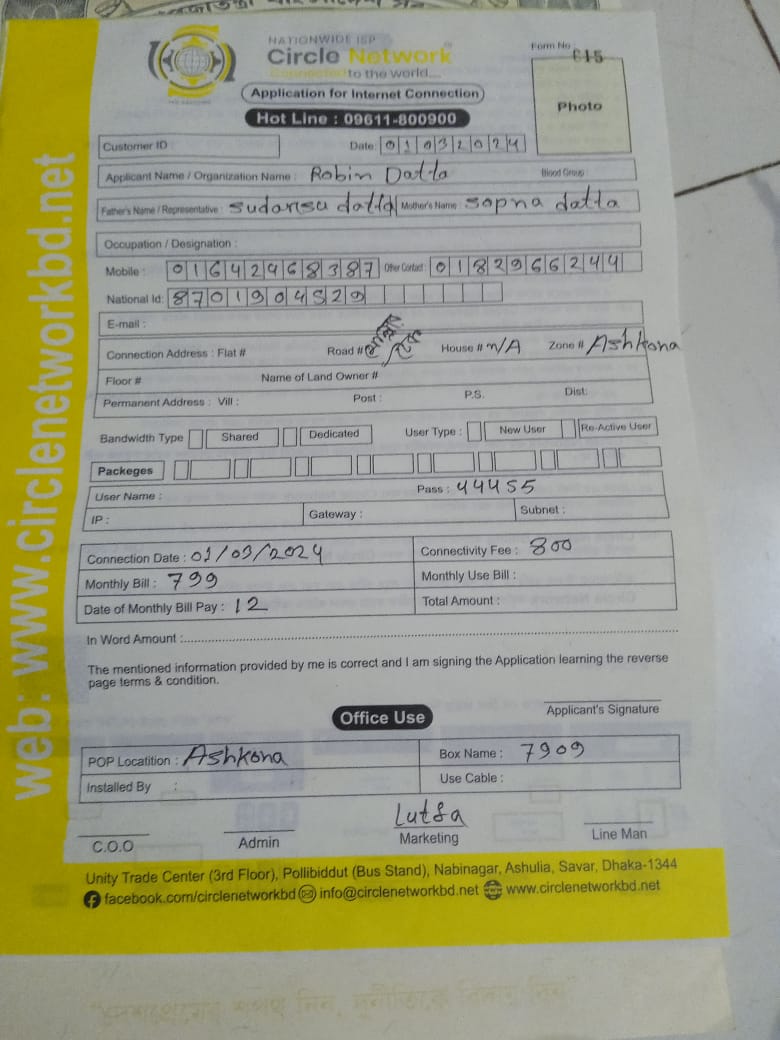 NATIONWIDE ISP
Circle Network
Connected to the world....
Form No 615
Application for Internet Connection
Hot Line : 09611-800900
Photo
Customer ID
Date: 01032024
Applicant Name / Organization Name : Robin Datta
Blood Group
Father's Name / Representative : Sudansu datta Mother's Name : Sapna datta
Occupation / Designation :
Mobile : 01642468387 Other Contact : 0182966244
National Id: 8701904529
E-mail :
Connection Address : Flat # Road # House # N/A Zone # Ashkona
Floor # Name of Land Owner #
Permanent Address : Vill : Post : P.S. Dist:
Bandwidth Type Shared Dedicated User Type : New User Re-Active User
Packeges
User Name : Pass : 44455
IP : Gateway : Subnet :
Connection Date : 01/03/2024 Connectivity Fee : 800
Monthly Bill : 799 Monthly Use Bill :
Date of Monthly Bill Pay : 12 Total Amount :
In Word Amount :
The mentioned information provided by me is correct and I am signing the Application learning the reverse
page terms & condition.
Applicant's Signature
Office Use
POP Locatition : Ashkona Box Name : 7909
Installed By : Use Cable :
Lutfa
C.O.O Admin Marketing Line Man
Unity Trade Center (3rd Floor), Pollibiddut (Bus Stand), Nabinagar, Ashulia, Savar, Dhaka-1344
facebook.com/circlenetworkbd info@circlenetworkbd.net www.circlenetworkbd.net
web: www.circlenetworkbd.net